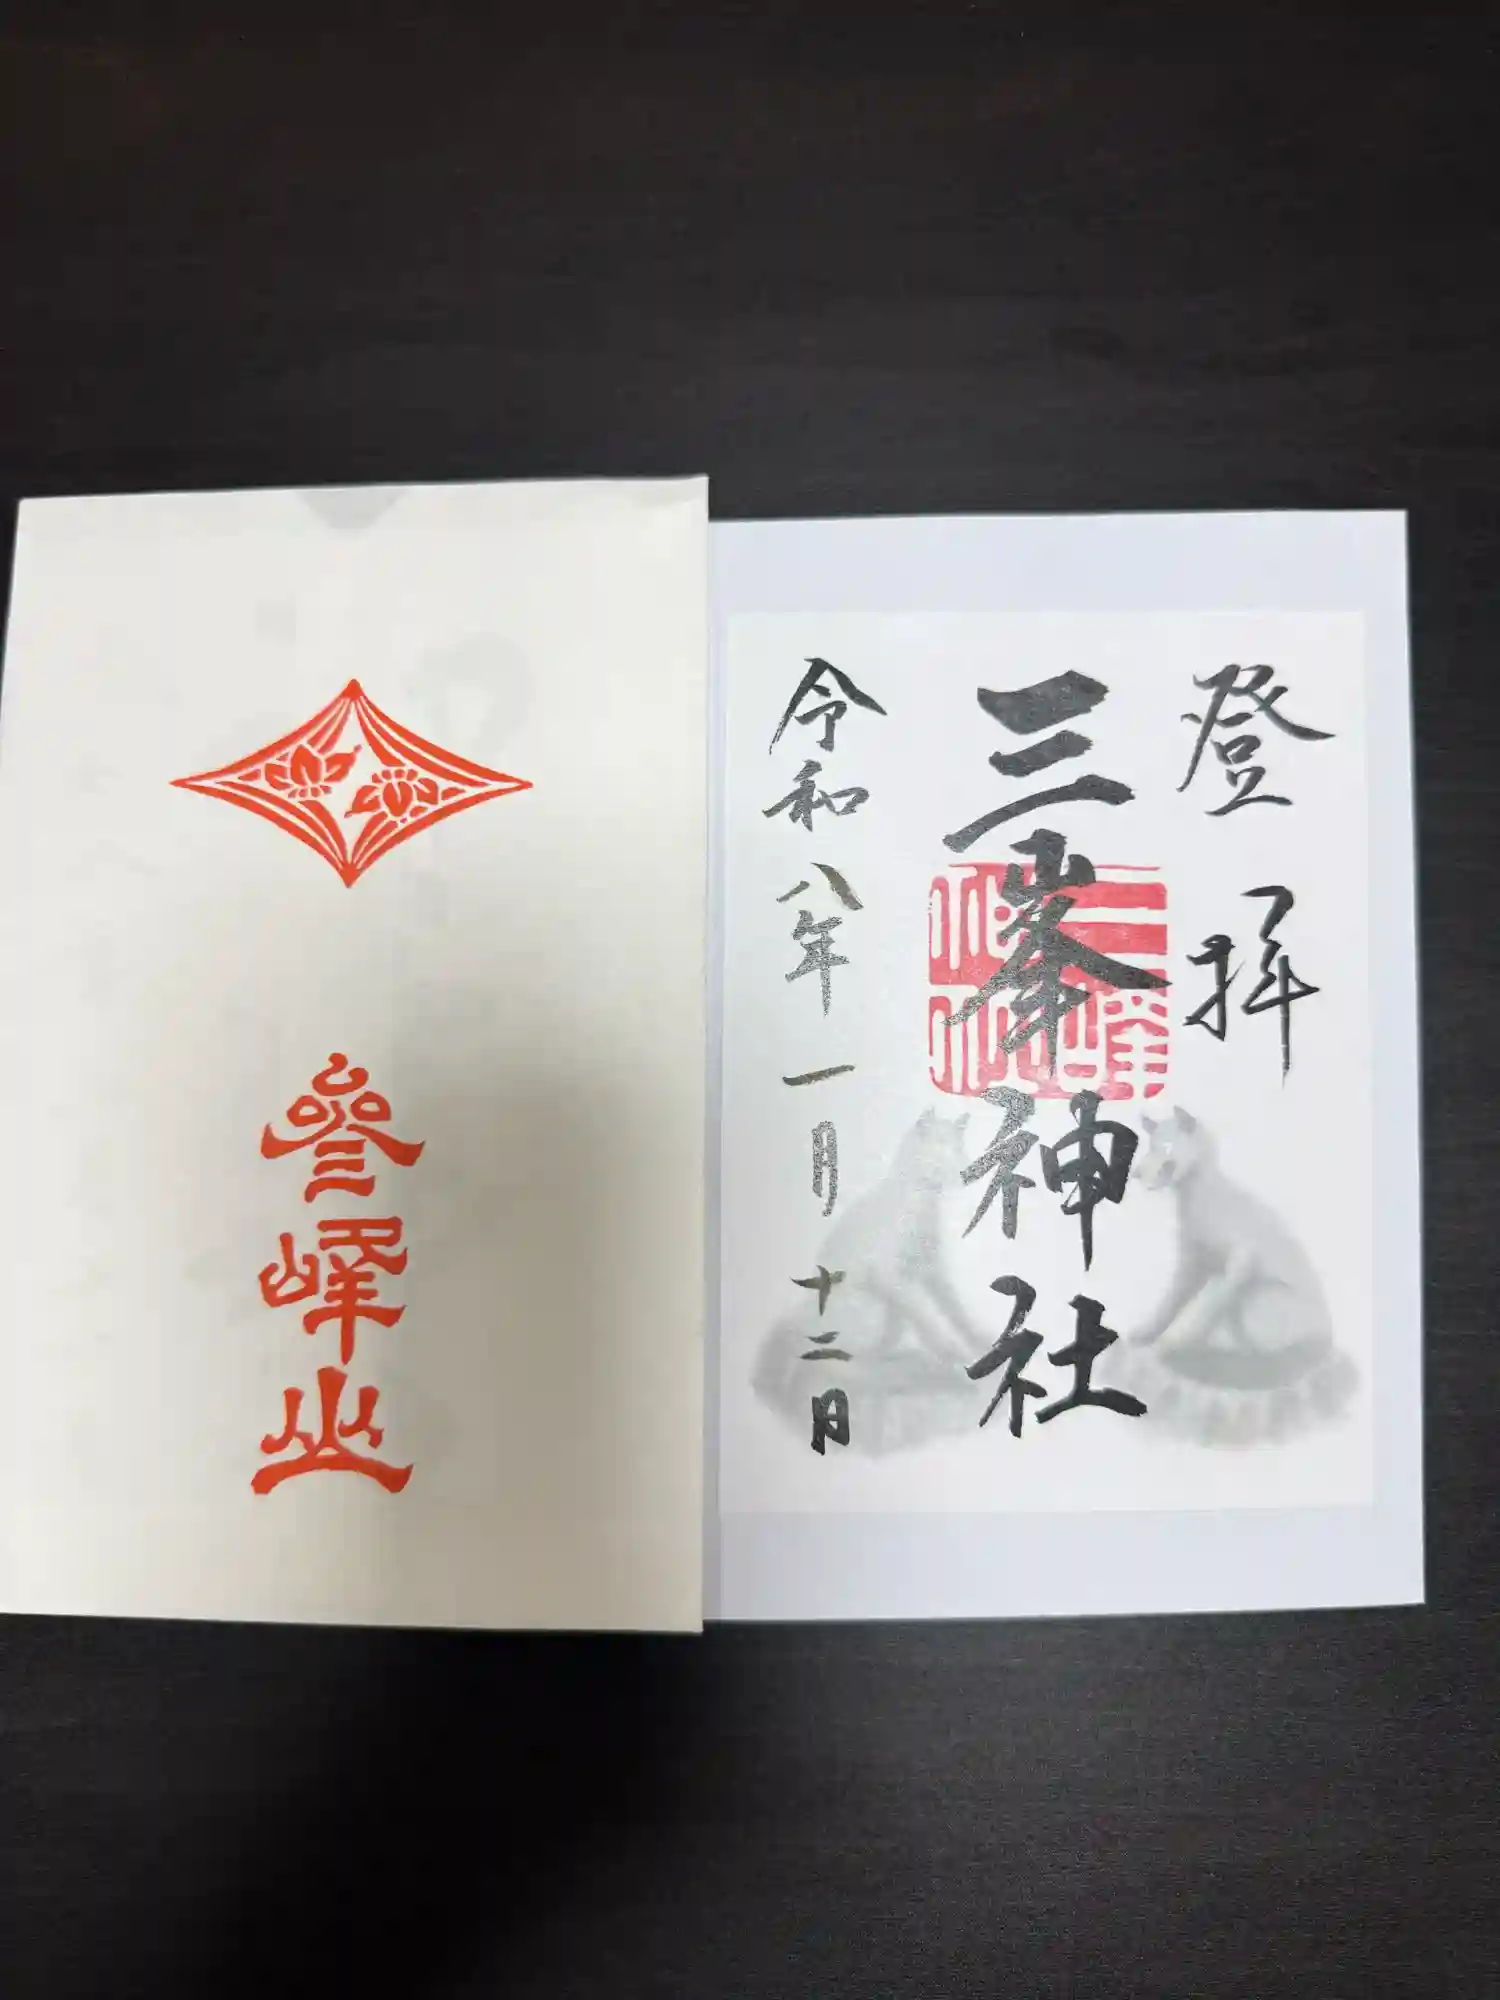 登拝
三峯神社
三峰神社
令和八年一月十二日
參峰山